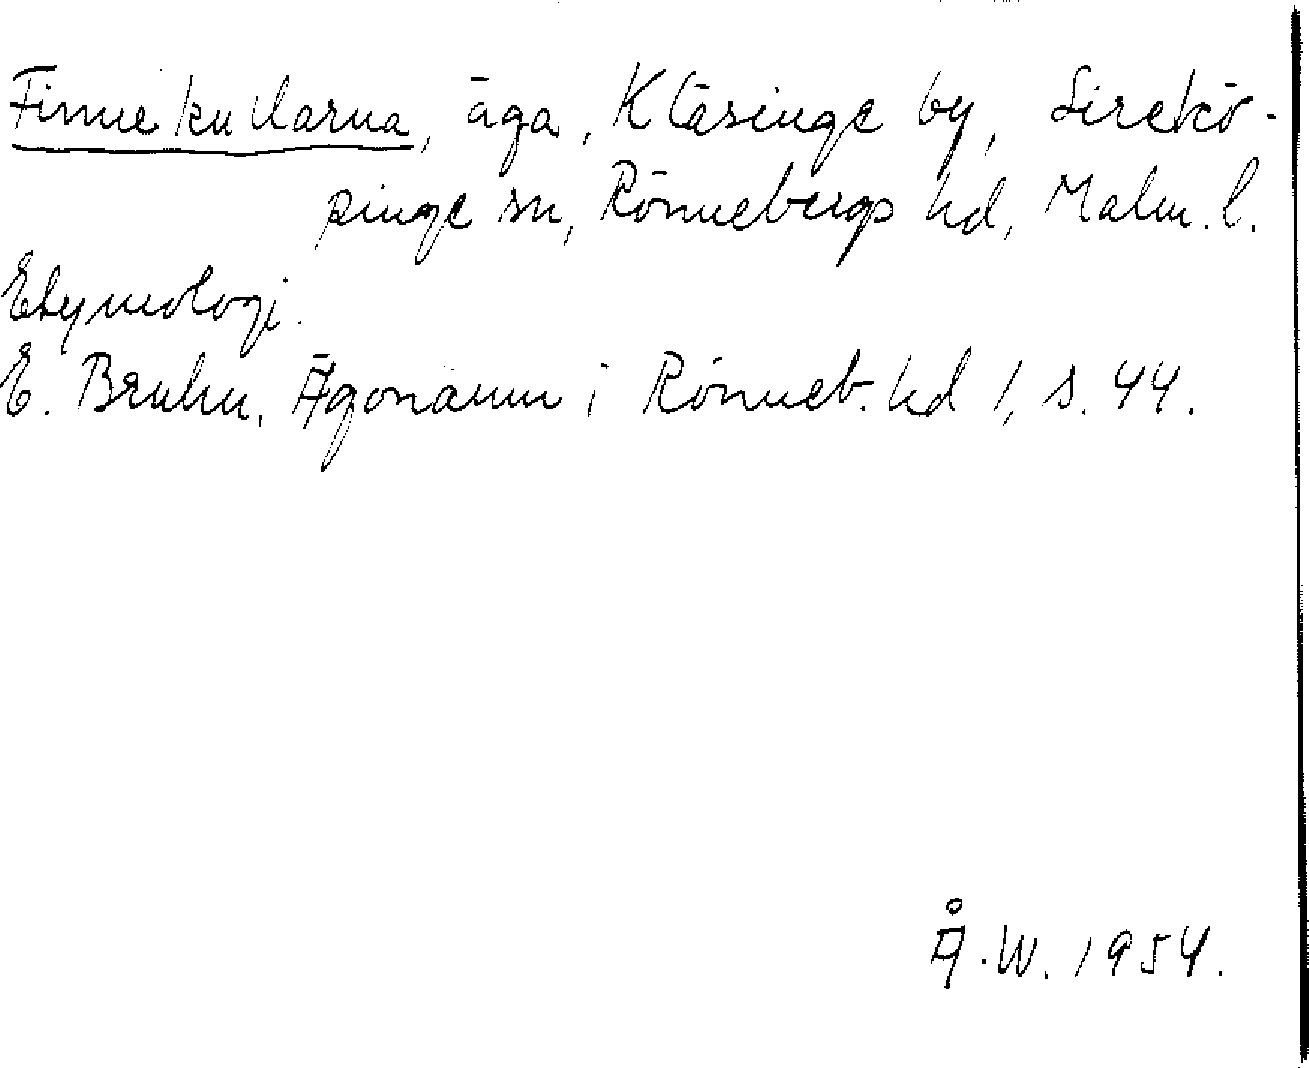 Finnekullarna, äga, Kläsinge by, Sirekö-
pinge sn, Rönnebergs hd, Malm. l.
Etymologi.
E. Bruhn, Ägonamn i Rönneb. hd 1, s. 44.
Å.W. 1954.